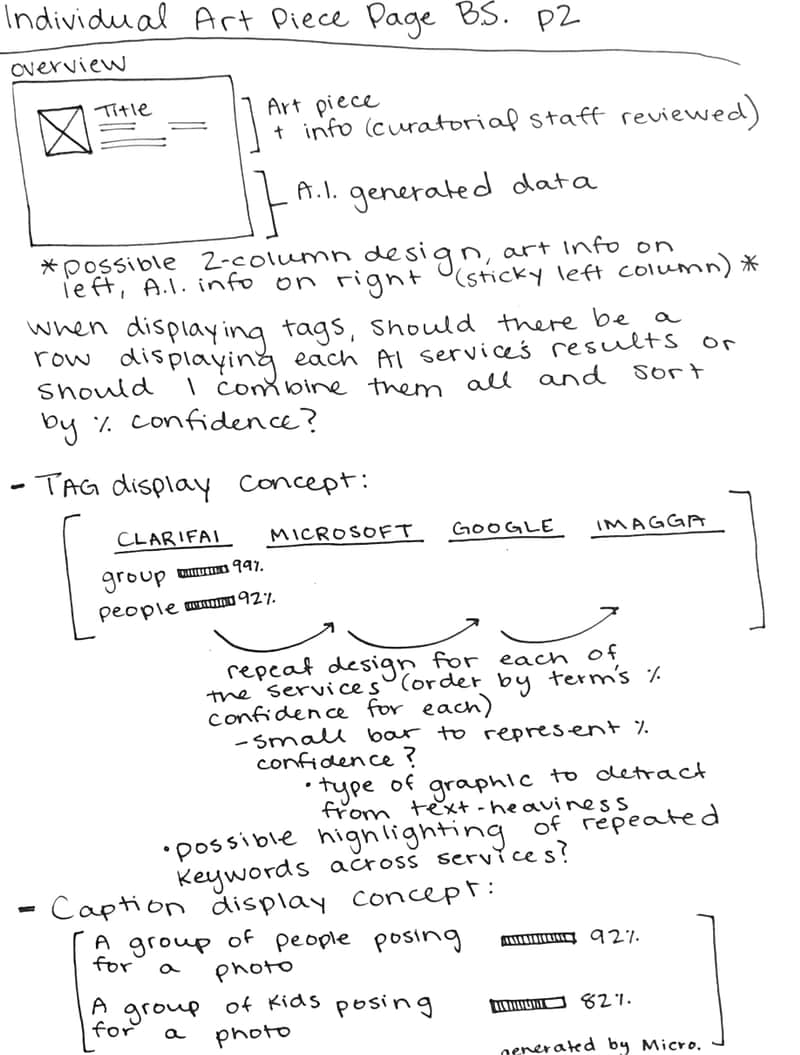 Individual Art Piece Page B.S. p2
overview
Title
Art piece
+ info (curatorial staff reviewed)
A.I. generated data
*possible 2-column design, art info on
left, A.I. info on right (sticky left column)*
when displaying tags, should there be a
row displaying each AI service's results or
should I combine them all and sort
by % confidence?
- TAG display concept:
CLARIFAI MICROSOFT GOOGLE IMAGGA
group 99%
people 92%
repeat design for each of
the services (order by term's %
confidence for each)
- small bar to represent %
confidence?
• type of graphic to detract
from text-heaviness
• possible highlighting of repeated
keywords across services?
- Caption display concept:
A group of people posing 92%
for a photo
A group of kids posing 82%
for a photo
generated by Micro.